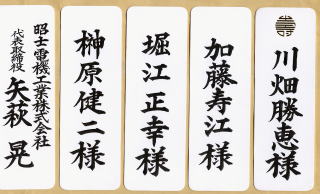 川畑勝恵様
加藤寿江様
堀江正幸様
榊原健二様
昭士電機工業株式会社
代表取締役
矢萩晃